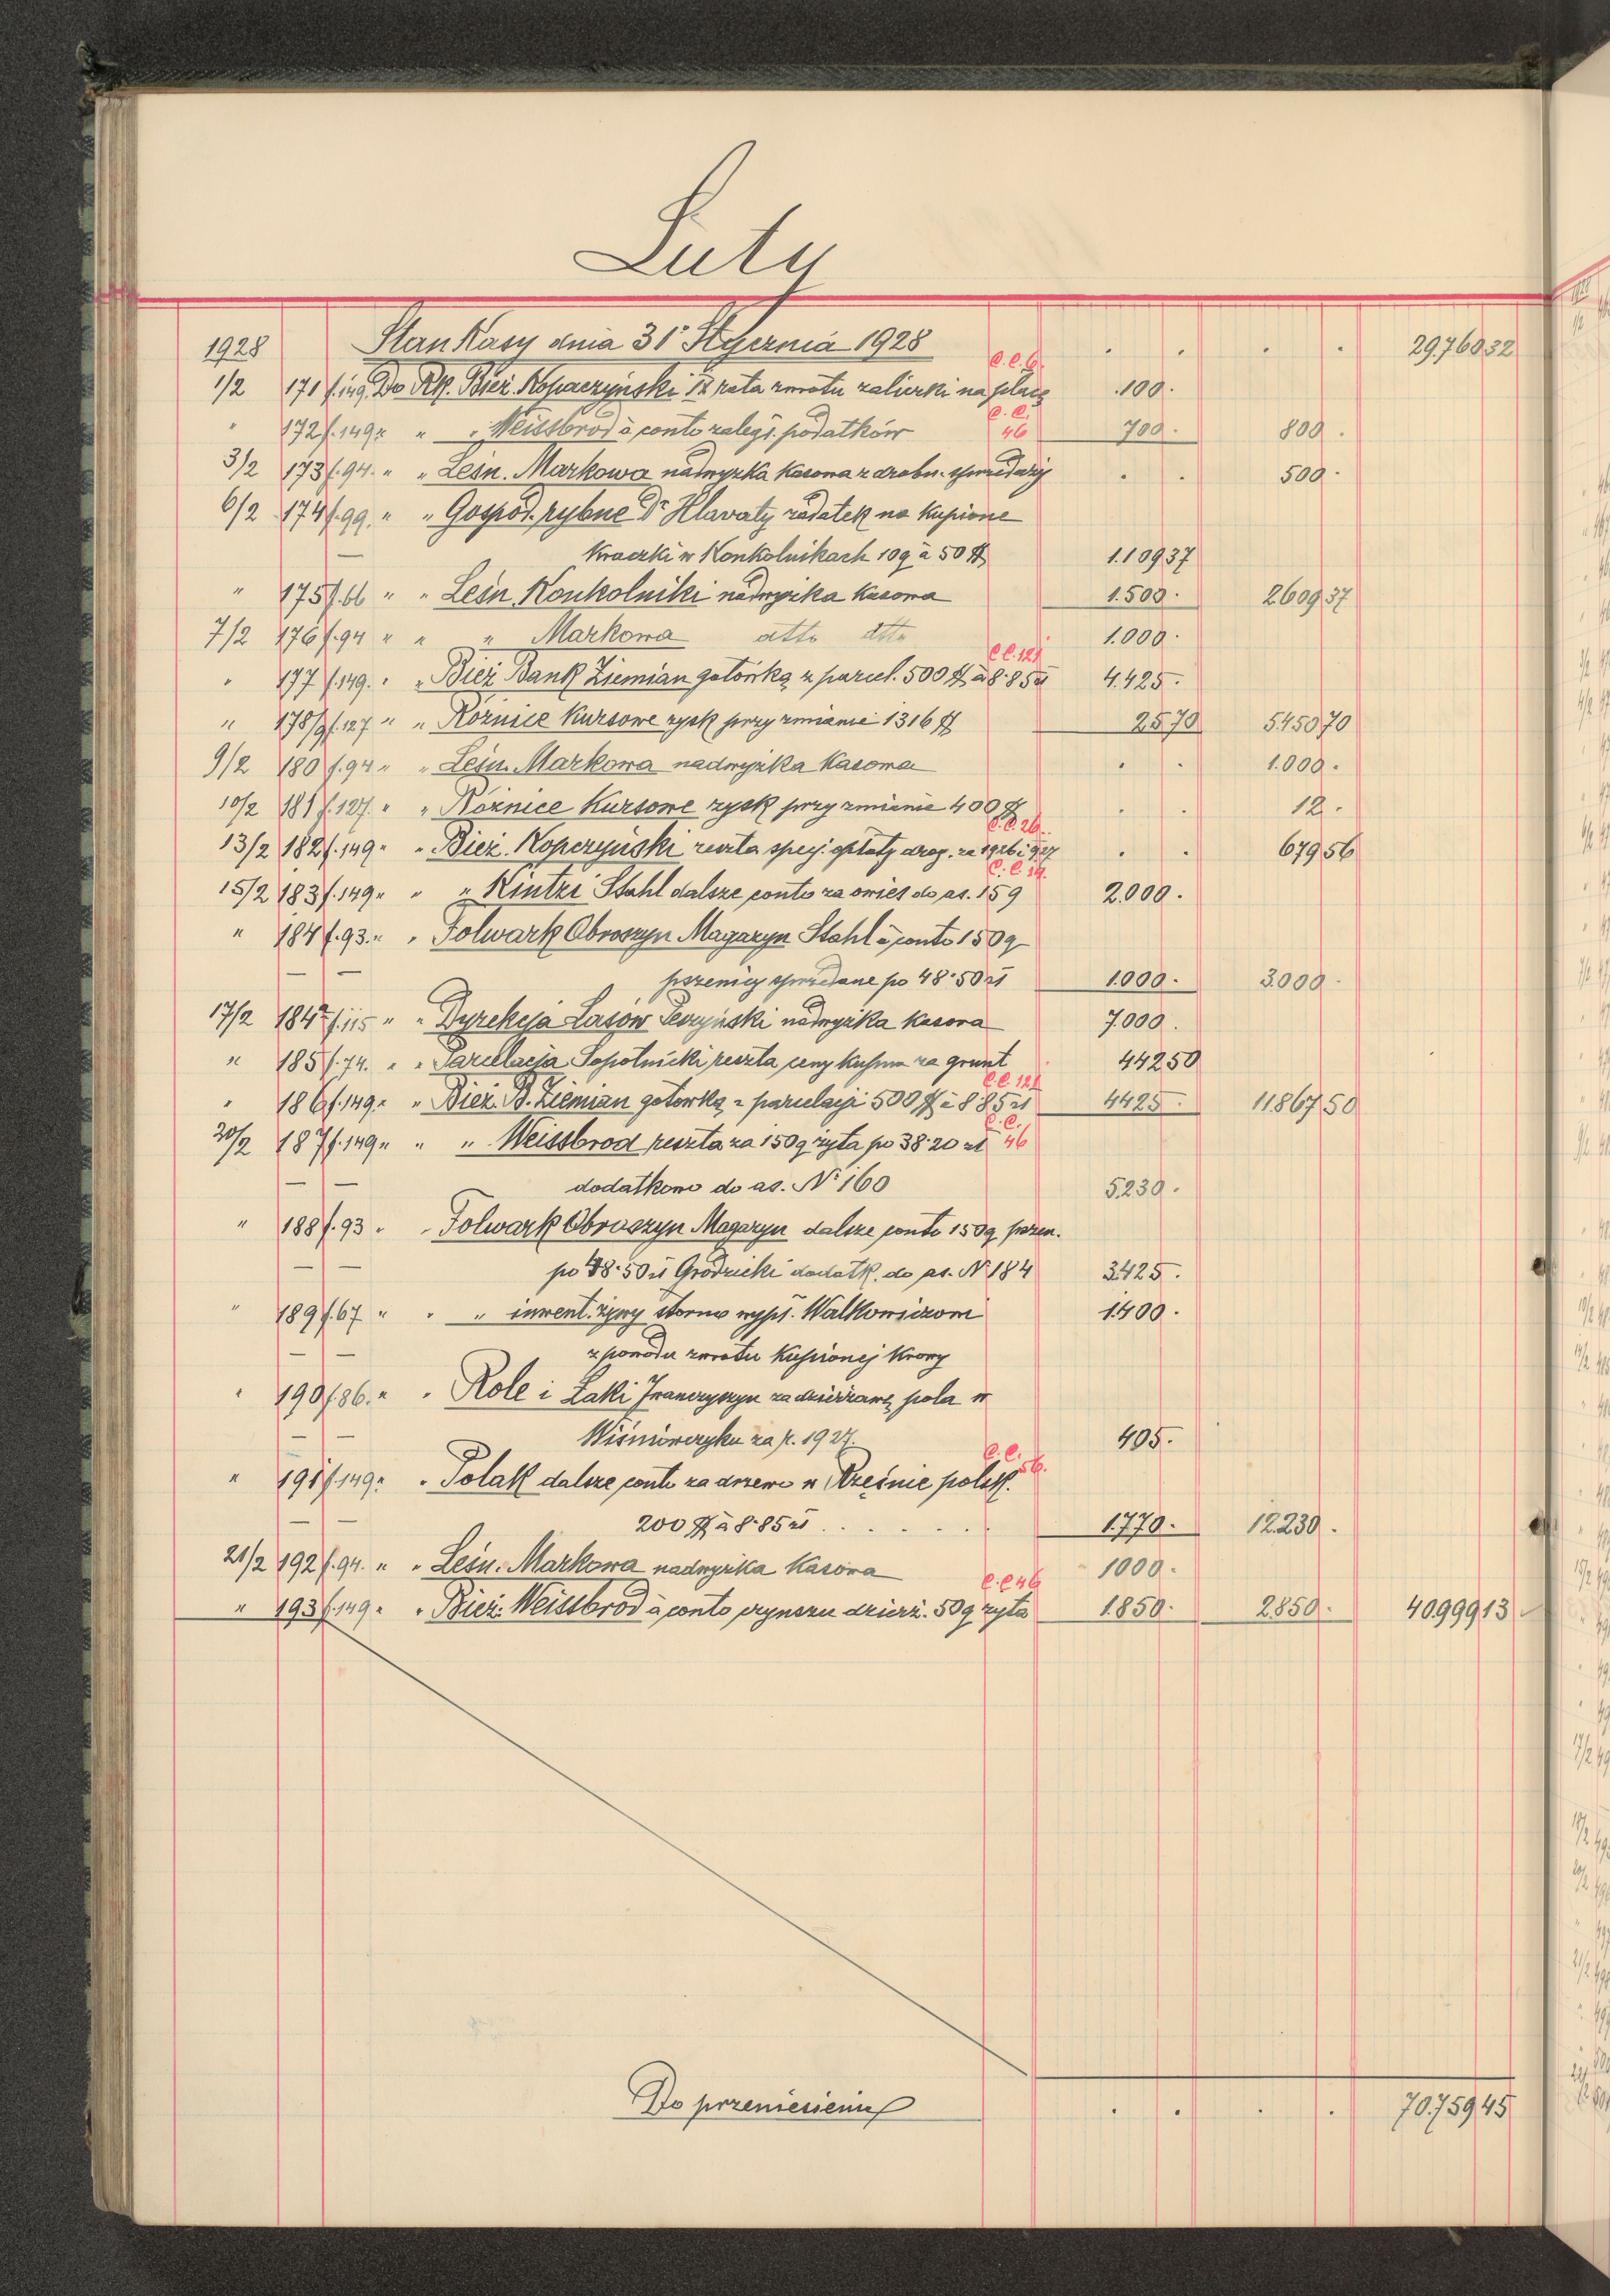 Luty
1928 Stan Kasy dnia 31 Stycznia 1928 . . . . 29.760 32
C.C.6.
1/2 171 f.149. Do Rk. Bież. Kopaczyński IX rata zwrotu zaliczki na płacę 100.
C.C.
" 172 f.149. " " Weissbrod à conto zaległ. podatków 46 700. 800.
3/2 173 f.94. " " Leśn. Markowa nadwyżka kasowa z drobn. sprzedaży . . 500.
6/2 174 f.99. " " Gospod. rybne Dr Hlavaty zadatek na kupione
— kroczki w Konkolnikach 10q à 50 $ 1.109 37
" 175 f.66 " " Leśn. Konkolniki nadwyżka kasowa 1.500. 2609 37
7/2 176 f.94 " " " Markowa dtto dtto 1.000.
C.C.121
" 177 f.149. " " Bież. Bank Ziemian gotówką z parcel. 500 $ à 8.85 zł 4.425.
" 178/9 f.127 " " Różnice Kursowe zysk przy zmianie 1316 $ 25 70 5.450 70
9/2 180 f.94 " " Leśn. Markowa nadwyżka kasowa . . 1.000.
10/2 181 f.127. " " Różnice Kursowe zysk przy zmianie 400 $ . . 12.
C.C.26.
13/2 182 f.149 " " Bież. Kopczyński reszta specj. opłaty drog. za 1926 i 927 . . 679 56
C.C.14.
15/2 183 f.149 " " " Kintzi Stahl dalsze conto za owies do as. 159 2.000.
" 184 f.93. " " Folwark Obroszyn Magazyn Stahl à conto 150q
— — pszenicy sprzedane po 48.50 zł 1.000. 3.000.
17/2 184a f.115 " " Dyrekcja Lasów nadwyżka kasowa 7.000.
" 185 f.74. " " Parcelacja Sopotnicki reszta ceny kupna za grunt 442 50
C.C.121
" 186 f.149. " " Bież. B. Ziemian gotówką z parcelacji 500 $ à 8 85 zł 4425. 11.867 50
C.C.
20/2 187 f.149 " " " Weissbrod reszta za 150q żyta po 38.20 zł 46
— — dodatkowo do as. No 160 5.230.
" 188 f.93 " " Folwark Obroszyn Magazyn dalsze conto 150q pszen.
— — po 48.50 zł Grodzicki dodatk. do as. N. 184 3.425.
" 189 f.67 " " " inwent. żywy storno wypł. Walkowiczowi 1.400.
— — z powodu zwrotu kupionej krowy
" 190 f.86. " " Role i Łąki Iwanczyszyn za dzierżawę pola w
— — Wiśniowczyku za r. 1927. 405.
C.C. 56.
" 191 f.149 " " Polak dalsze conto za drzewo w Rzęśnie polsk.
— — 200 $ à 8.85 zł . . . . . 1.770. 12.230.
21/2 192 f.94. " " Leśn. Markowa nadwyżka kasowa 1000.
C.C 46
" 193 f.149 " " Bież. Weissbrod à conto czynszu dzierż. 50q żyta 1.850. 2.850. 40.999 13
Do przeniesienia . . . . 70.759 45